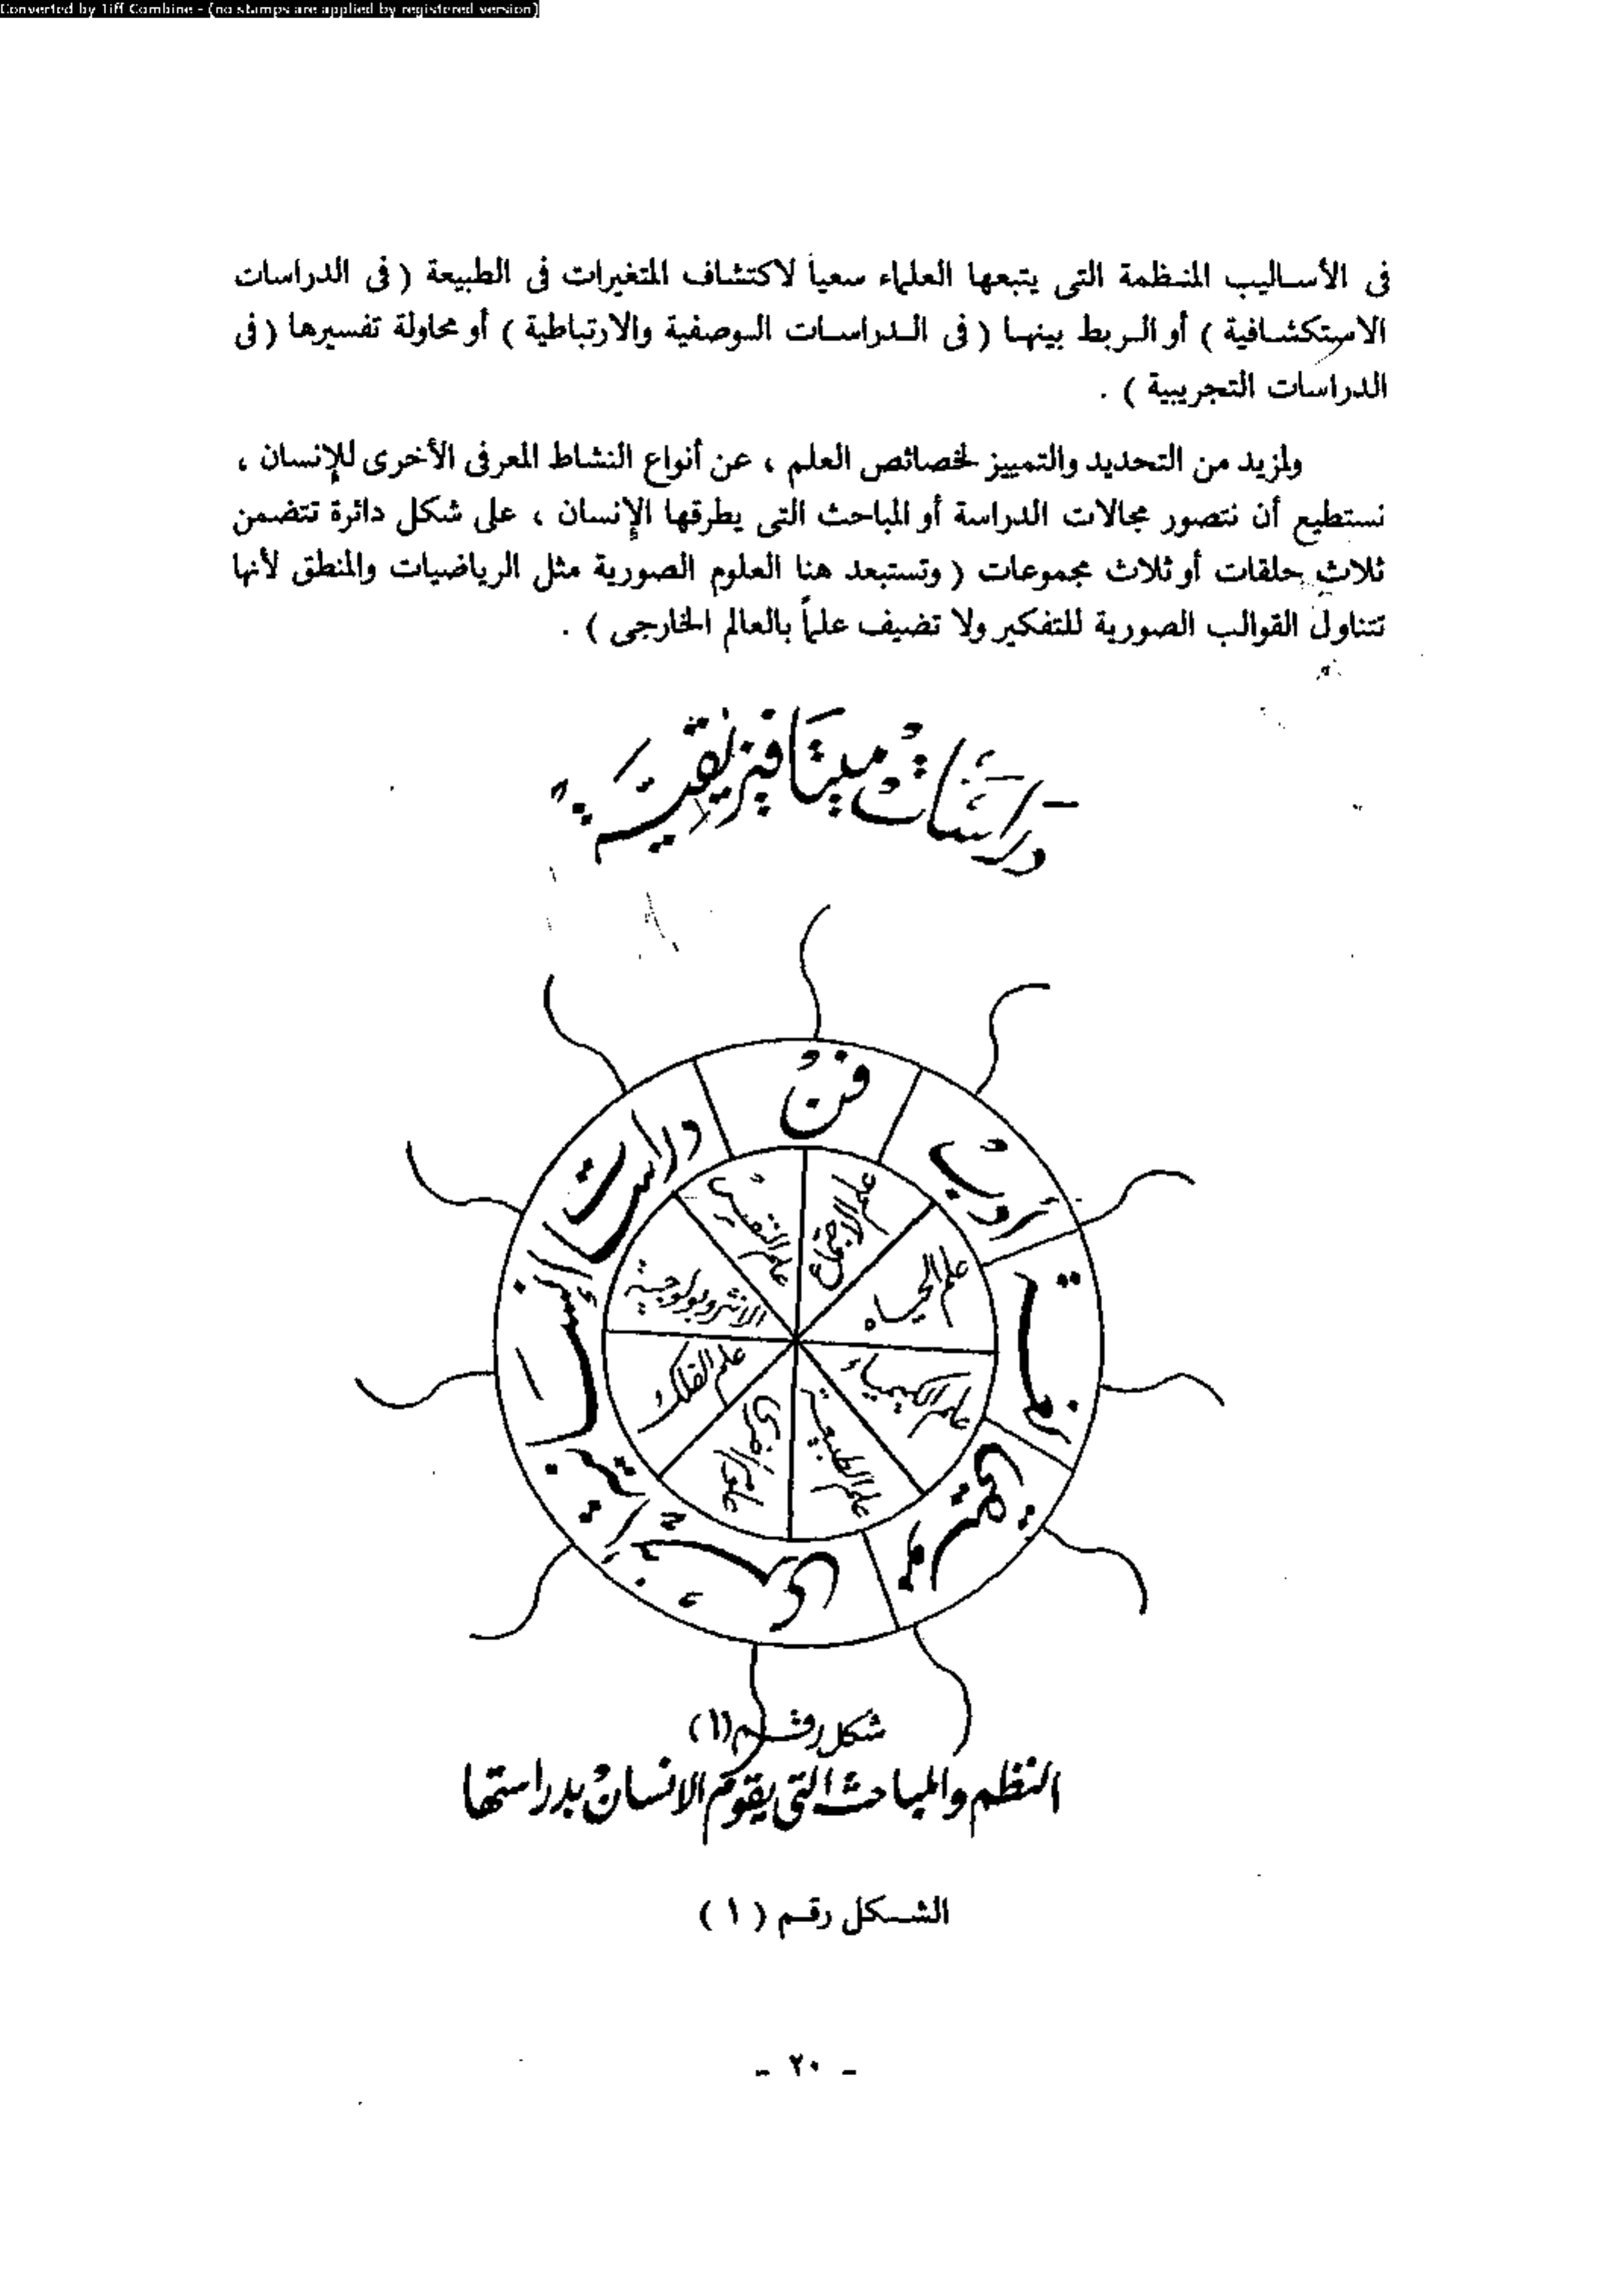 Converted by Tiff Combine - (no stamps are applied by registered version)
فى الأساليب المنظمة التى يتبعها العلماء سعياً لاكتشاف المتغيرات فى الطبيعة ( فى الدراسات
الاستكشافية ) أو الربط بينها ( فى الدراسات الوصفية والارتباطية ) أو محاولة تفسيرها ( فى
الدراسات التجريبية ) .
ولمزيد من التحديد والتمييز لخصائص العلم ، عن أنواع النشاط المعرفى الأخرى للإنسان ،
نستطيع أن نتصور مجالات الدراسة أو المباحث التى يطرقها الإنسان ، على شكل دائرة تتضمن
ثلاث حلقات أو ثلاث مجموعات ( وتستبعد هنا العلوم الصورية مثل الرياضيات والمنطق لأنها
تتناول القوالب الصورية للتفكير ولا تضيف علماً بالعالم الخارجى ) .
دراسات ميتافيزيقية
فن
أدب
لغة
دراسات إنسانية
أخرى
علم الاجتماع
علم النفس
علم الحياه
الانثروبولوجية
علم الكيمياء
علم الفلك
علم الطبيعة
علوم اخرى
شكل رقم (١)
النظم والمباحث التى يقوم الانسان بدراستها
الشكل رقم ( ١ )
- ٢٠ -